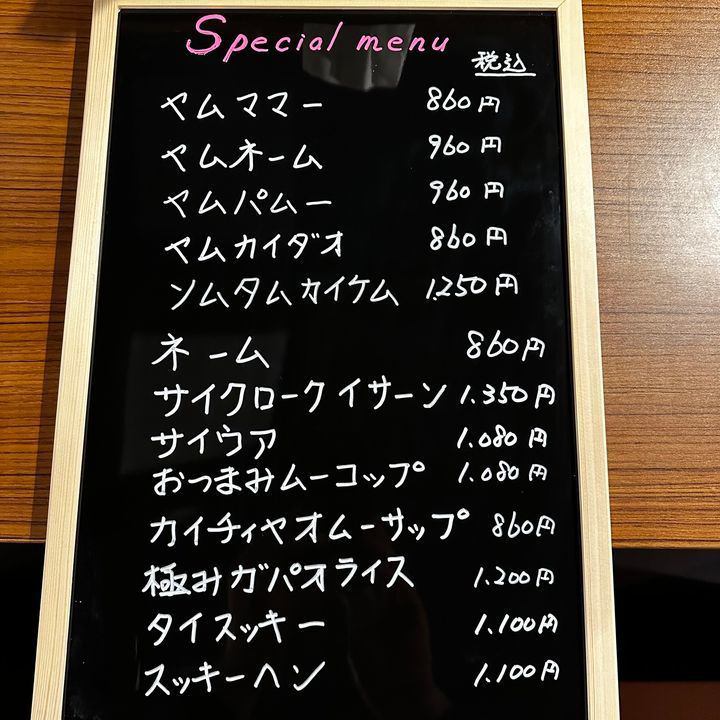 Special menu
税込
ヤムママー 860円
ヤムネーム 960円
ヤムパムー 960円
ヤムカイダオ 860円
ソムタムカイケム 1.250円
ネーム 860円
サイクロークイサーン 1.350円
サイウア 1.080円
おつまみムーコップ 1.080円
カイチィヤオムーサップ 860円
極みガパオライス 1.200円
タイスッキー 1.100円
スッキーヘン 1.100円